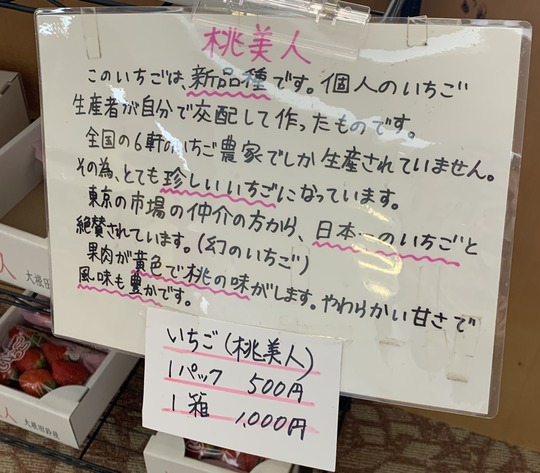 桃美人
このいちごは、新品種です。個人のいちご
生産者が自分で交配して作ったものです。
全国の6軒のいちご農家でしか生産されていません。
その為、とても珍しいいちごになっています。
東京の市場の仲介の方から、日本一のいちごと
絶賛されています。(幻のいちご)
果肉が黄色で桃の味がします。やわらかい甘さで
風味も豊かです。
いちご(桃美人)
1パック 500円
1箱 1,000円